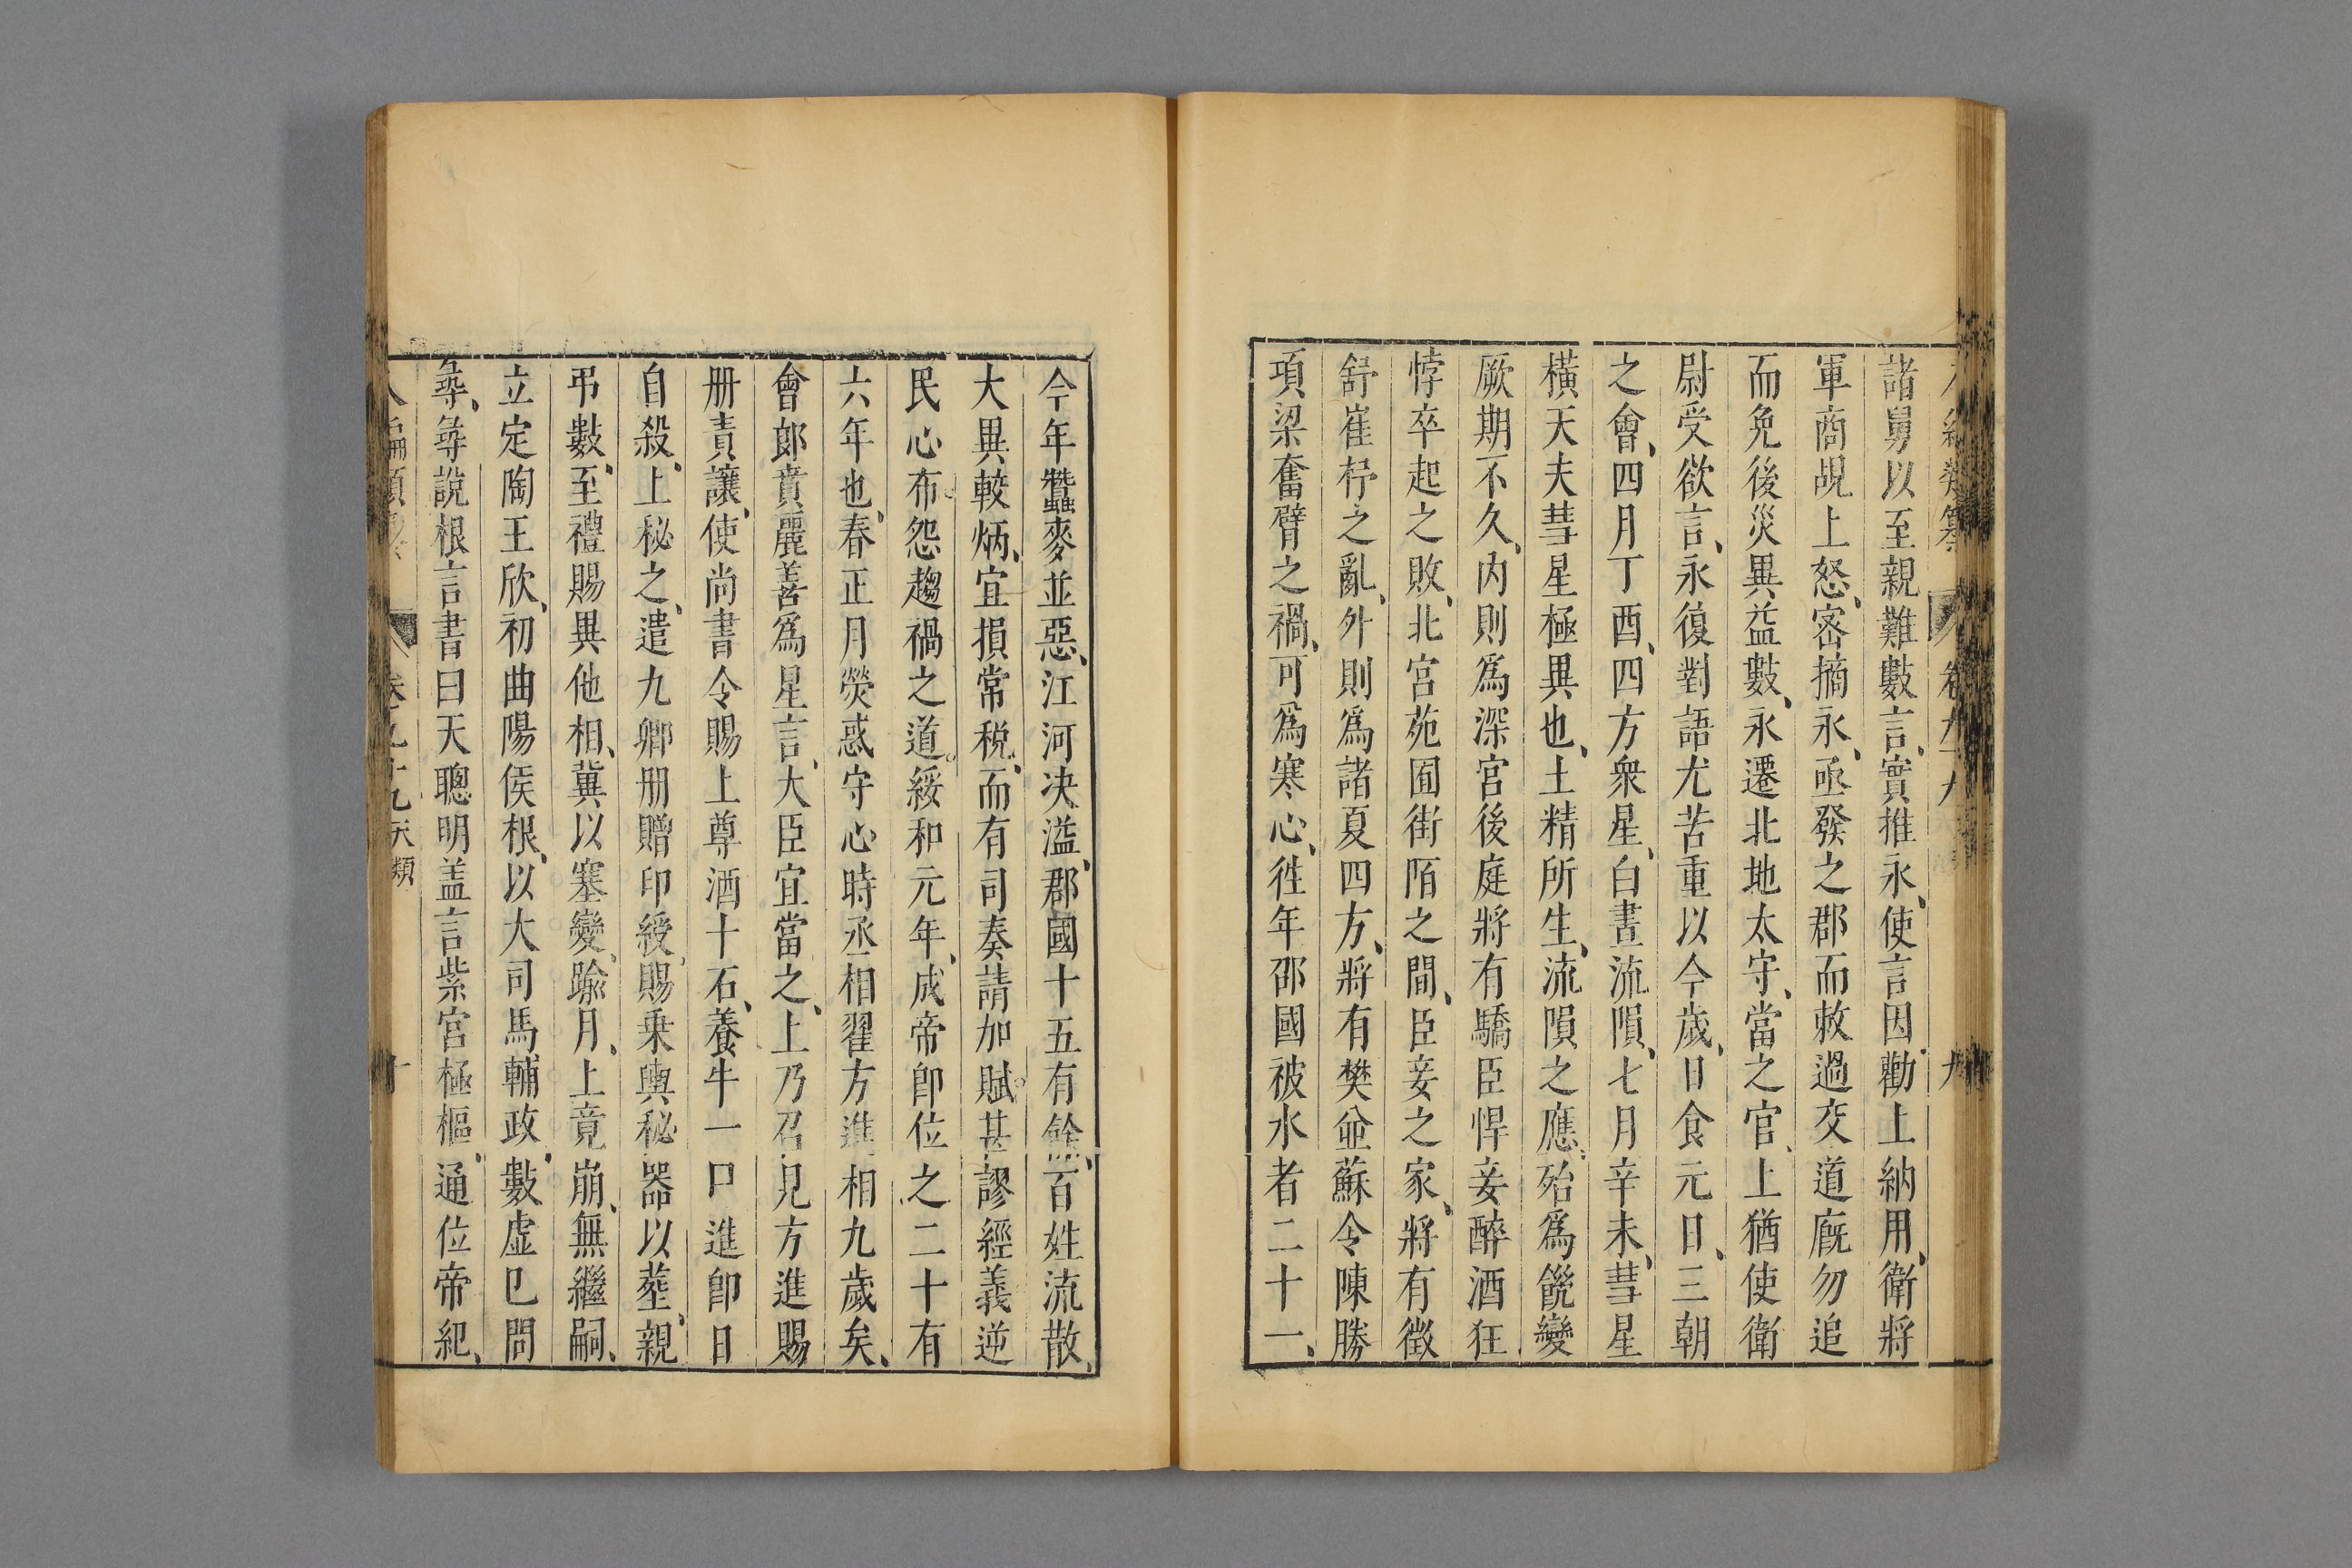 諸舅以至親難數言、實推永、使言因勸上納用、衛將
軍商覘上怒、密摘永、亟發之郡而敕過交道廐勿追
而免後災異益數、永遷北地太守、當之官、上猶使衛
尉受欲言、永復對語尤苦重以今歲、日食元日、三朝
之會、四月丁酉、四方衆星、白晝流隕、七月辛未、彗星
橫天夫彗星極異也、土精所生、流隕之應、殆爲饑變
厥期不久、内則爲深宮後庭將有驕臣悍妾醉酒狂
悖卒起之敗、北宮苑囿街陌之間、臣妾之家、將有徵
舒崔杼之亂、外則爲諸夏四方、將有樊並蘇令陳勝
項梁奮臂之禍、可爲寒心、徃年郡國被水者二十一、
今年蠶麥並惡、江河决溢、郡國十五有餘、百姓流散、
大異較炳、宜損常税、而有司奏請加賦甚謬經義逆
民心布怨趨禍之道。綏和元年、成帝卽位之二十有
六年也、春正月熒惑守心時丞相翟方進相九歲矣、
會郎賁麗善爲星言、大臣宜當之、上乃召見方進賜
册責讓、使尚書令賜上尊酒十石、養牛一口進卽日
自殺、上秘之、遣九卿册贈印綬、賜乗輿秘器以塟、親
弔數、至禮賜異他相、冀以塞變、踰月、上竟崩、無繼嗣、
立定陶王欣、初曲陽侯根、以大司馬輔政、數虛己問
尋、尋說根言書曰天聰明盖言紫宮極樞、通位帝紀、
卷之十九天類 十